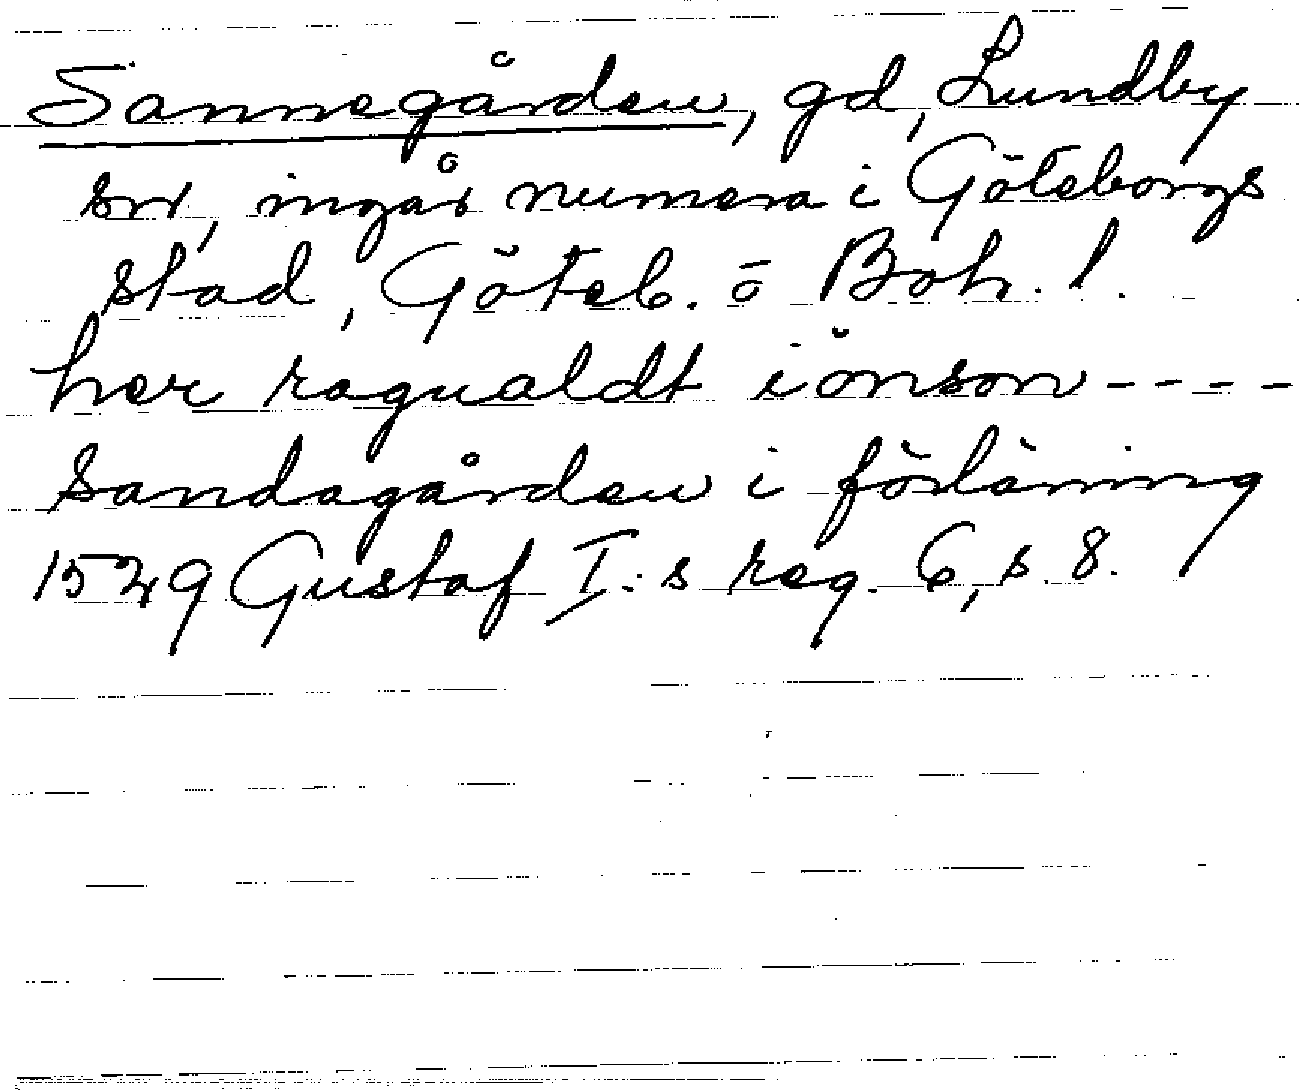 Sannegården, gd, Lundby
sn, ingår numera i Göteborgs
stad, Göteb. o Boh. l.
her ragualdt iönson ----
Sandagården i förläning
1529 Gustaf I:s reg. 6, s. 8.